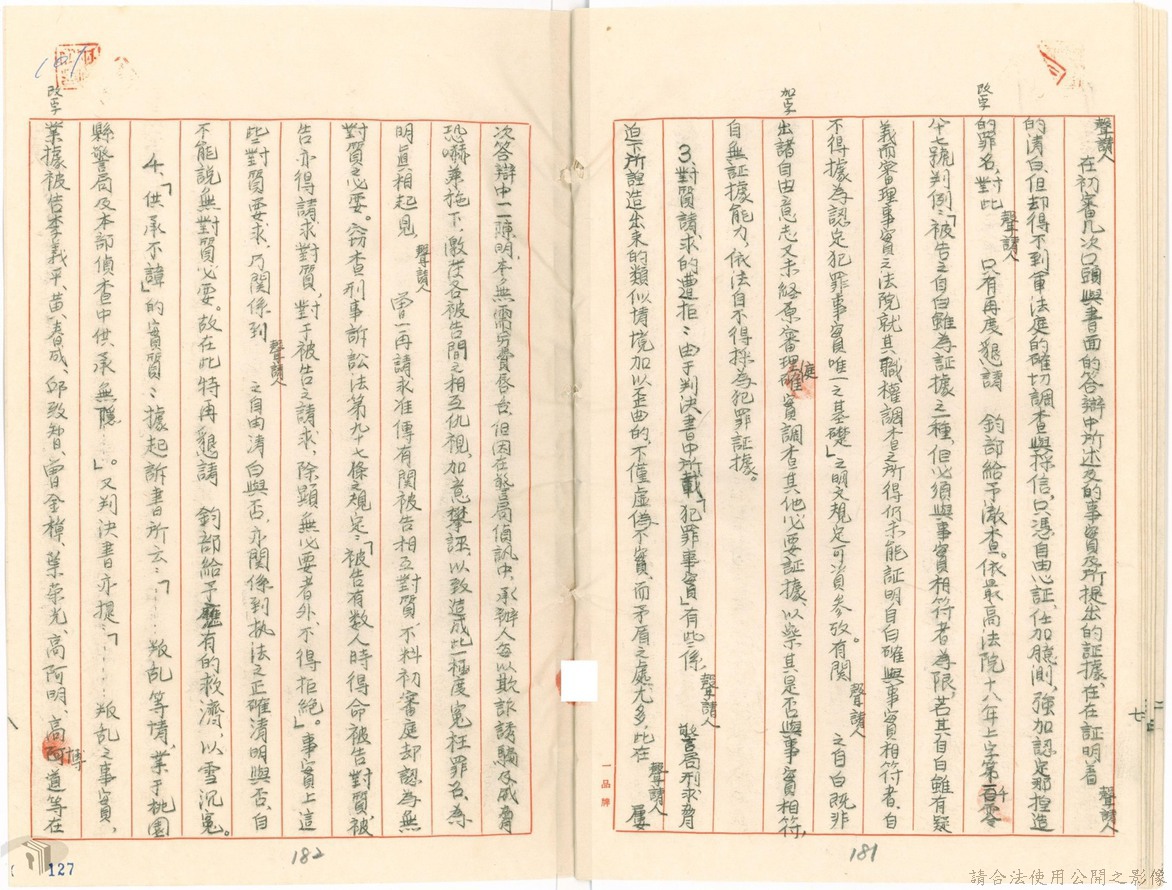 聲請人
在初審几次口頭與書面的答辯中所述及的事實及所提出的証據，在在証明着 聲請人
的清白，但却得不到軍法庭的確切調查與採信，只憑自由心証，任加臆測，強加認定那捏造
改字
的罪名，對此 聲請人 只有再度懇請 鈞部給予澈查。依最高法院十八年上字第一千零
八七號判例：「被告之自白雖為証據之一種，但必須與事實相符者為限，若其自白雖有疑
義而審理事實之法院就其職權調查之所得仍未能証明自白確與事實相符者，自
不得據為認定犯罪事實唯一之基礎」之明文規定可資參攷。有関 聲請人 之自白既非
加字
出諸自由意志又未経原審理庭確實調查其他必要証據，以察其是否與事實相符，
自無証據能力，依法自不得採為犯罪証據。
3、對質請求的遭拒：由于判決書中所載「犯罪事實」有些係 聲請人 警局刑求脅
迫下所誣造出來的類似情境加以歪曲的，不僅虛偽不實，而矛盾之處尤多，此在 聲請人 屢
一品牌
181
次答辯中一一陳明，本無需另費唇舌，但因在警局偵訊中，承辦人每以欺詐誘騙及威脅
恐嚇兼施下，激發各被告間之相互仇視，加意攀誣，以致造成此一極度冤枉罪名，為
明真相起見 聲請人 曾一再請求准傳有関被告相互對質，不料初審庭却認為無
對質之必要。窃查刑事訴訟法第九十七條之規定：「被告有数人時得命被告對質，被
告亦得請求對質，對于被告之請求，除顯無必要者外，不得拒絶。」事實上這
些對質要求，乃関係到 聲請人 之自由清白與否，亦関係到执法之正確清明與否，自
不能説無對質必要。故在此特再懇請 鈞部給予應有的救濟，以雪沉冤。
4、「供承不諱」的實質：據起訴書所云：「……叛乱等情，業于桃園
縣警局及本部偵查中供承無隱……」。又判決書亦提：「……叛乱之事實，
改字
業據被告李義平、黄春成、邱致智、曾金樟、葉荣光、高阿明、高博道等在
182
127
請合法使用公開之影像